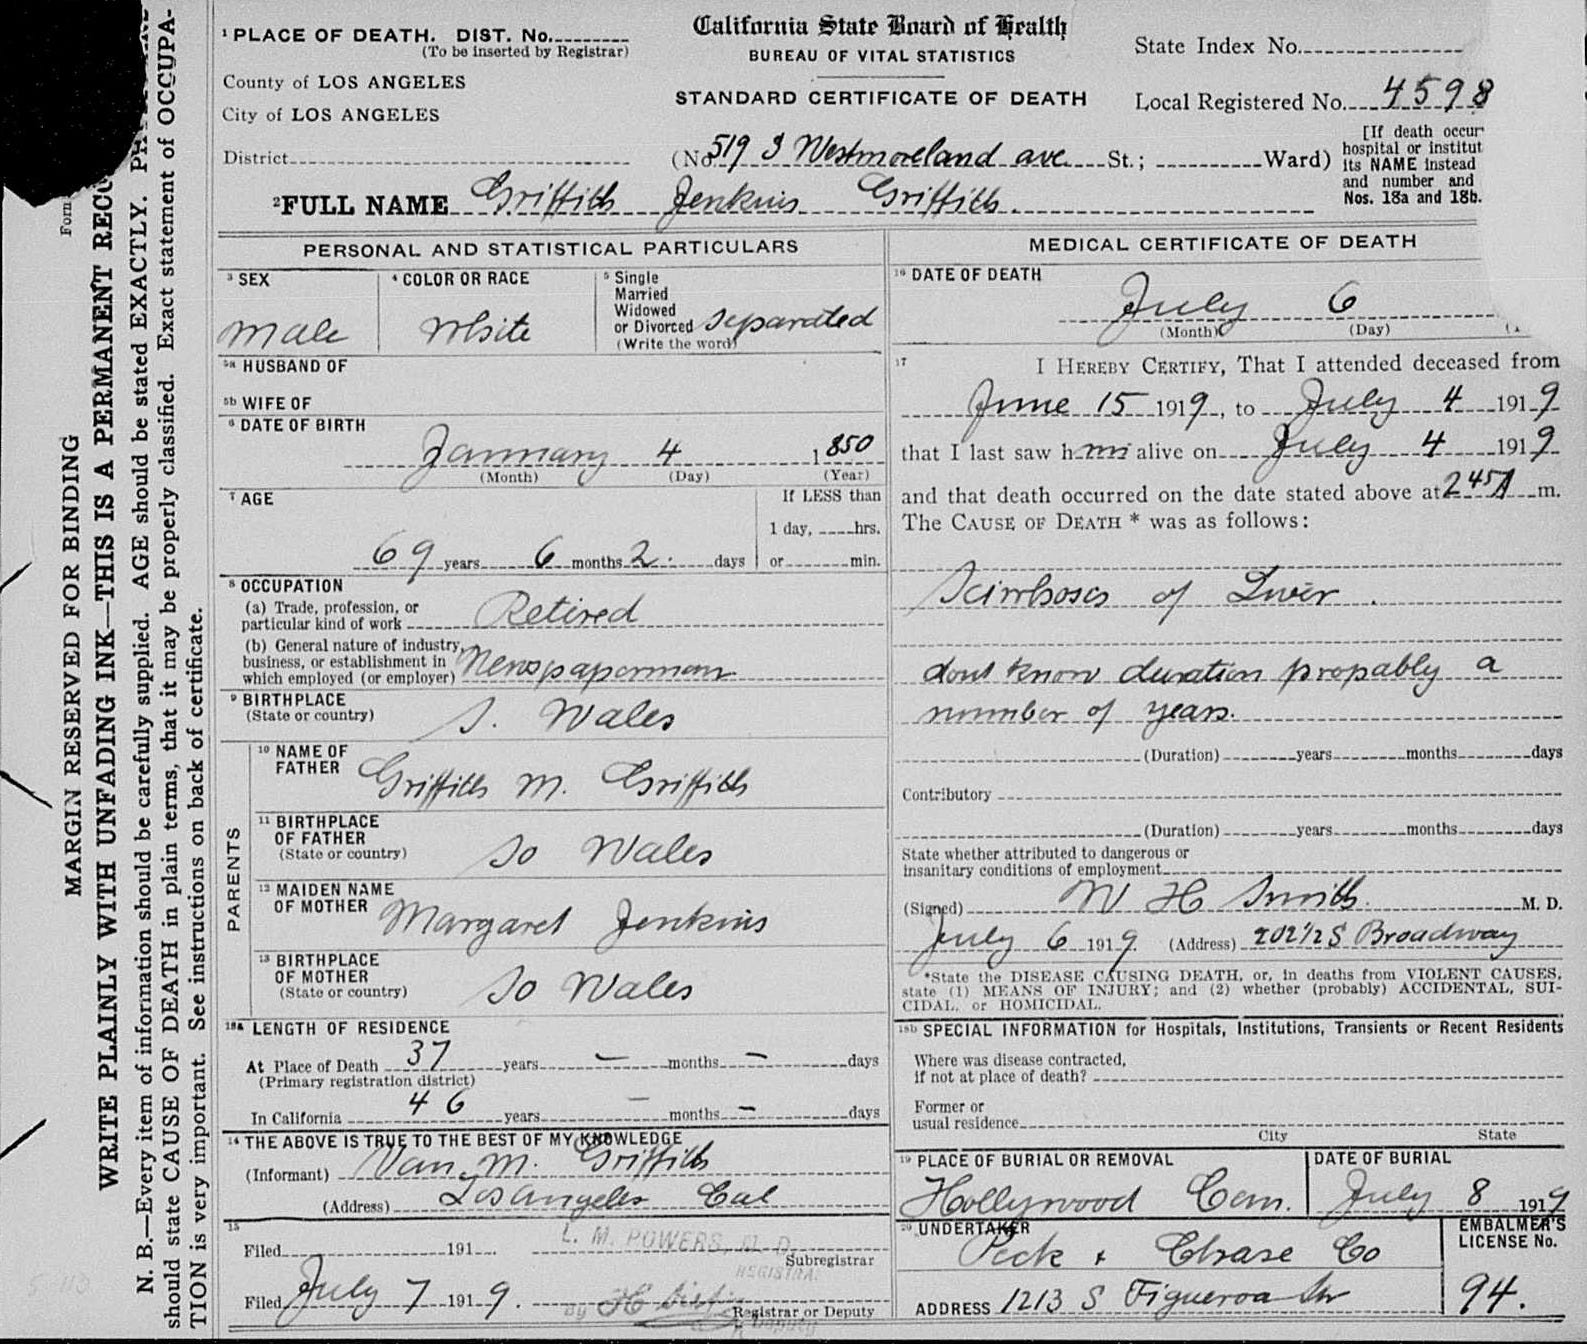 California State Board of Health
BUREAU OF VITAL STATISTICS
STANDARD CERTIFICATE OF DEATH
1 PLACE OF DEATH. DIST. No.
(To be inserted by Registrar)
County of LOS ANGELES
City of LOS ANGELES
District
State Index No.
Local Registered No. 4598
(No 519 S Westmoreland ave St.; Ward)
[If death occur
hospital or institut
its NAME instead
and number and
Nos. 18a and 18b.
2 FULL NAME Griffith Jenkins Griffith.
PERSONAL AND STATISTICAL PARTICULARS
3 SEX
Male
4 COLOR OR RACE
White
5 Single
Married
Widowed
or Divorced separated
(Write the word)
5a HUSBAND OF
5b WIFE OF
6 DATE OF BIRTH
January 4 1850
(Month) (Day) (Year)
7 AGE
69 years 6 months 2 days
If LESS than
1 day, hrs.
or min.
8 OCCUPATION
(a) Trade, profession, or
particular kind of work Retired
(b) General nature of industry,
business, or establishment in
which employed (or employer) Newspaperman
9 BIRTHPLACE
(State or country) S. Wales
PARENTS
10 NAME OF
FATHER Griffith M. Griffith
11 BIRTHPLACE
OF FATHER
(State or country) So Wales
12 MAIDEN NAME
OF MOTHER Margaret Jenkins
13 BIRTHPLACE
OF MOTHER
(State or country) So Wales
18a LENGTH OF RESIDENCE
At Place of Death 37 years — months — days
(Primary registration district)
In California 46 years — months — days
14 THE ABOVE IS TRUE TO THE BEST OF MY KNOWLEDGE
(Informant) Van. M. Griffith
(Address) Los Angeles Cal
15
Filed 191
L. M. POWERS, M. D.
Subregistrar
REGISTRAR
Filed July 7 1919.
By
Registrar or Deputy
Deputy
MEDICAL CERTIFICATE OF DEATH
16 DATE OF DEATH
July 6
(Month) (Day)
17 I HEREBY CERTIFY, That I attended deceased from
June 15 1919, to July 4 1919
that I last saw him alive on July 4 1919
and that death occurred on the date stated above at 2 45 A m.
The CAUSE OF DEATH * was as follows:
Scirrhoses of Liver.
dont know duration propably a
number of years.
(Duration) years months days
Contributory
(Duration) years months days
State whether attributed to dangerous or
insanitary conditions of employment
(Signed) W H Smith. M. D.
July 6 1919 (Address) 202 1/2 S Broadway
*State the DISEASE CAUSING DEATH, or, in deaths from VIOLENT CAUSES,
state (1) MEANS OF INJURY; and (2) whether (probably) ACCIDENTAL, SUI-
CIDAL, or HOMICIDAL.
18b SPECIAL INFORMATION for Hospitals, Institutions, Transients or Recent Residents
Where was disease contracted,
if not at place of death?
Former or
usual residence
City State
19 PLACE OF BURIAL OR REMOVAL
Hollywood Cem.
DATE OF BURIAL
July 8 1919
20 UNDERTAKER
Peck & Chase Co
ADDRESS 1213 S Figueroa St
EMBALMER'S
LICENSE No.
94.
Form
MARGIN RESERVED FOR BINDING
WRITE PLAINLY WITH UNFADING INK—THIS IS A PERMANENT RECO
N. B.—Every item of information should be carefully supplied. AGE should be stated EXACTLY. PH
should state CAUSE OF DEATH in plain terms, that it may be properly classified. Exact statement of OCCUPA-
TION is very important. See instructions on back of certificate.